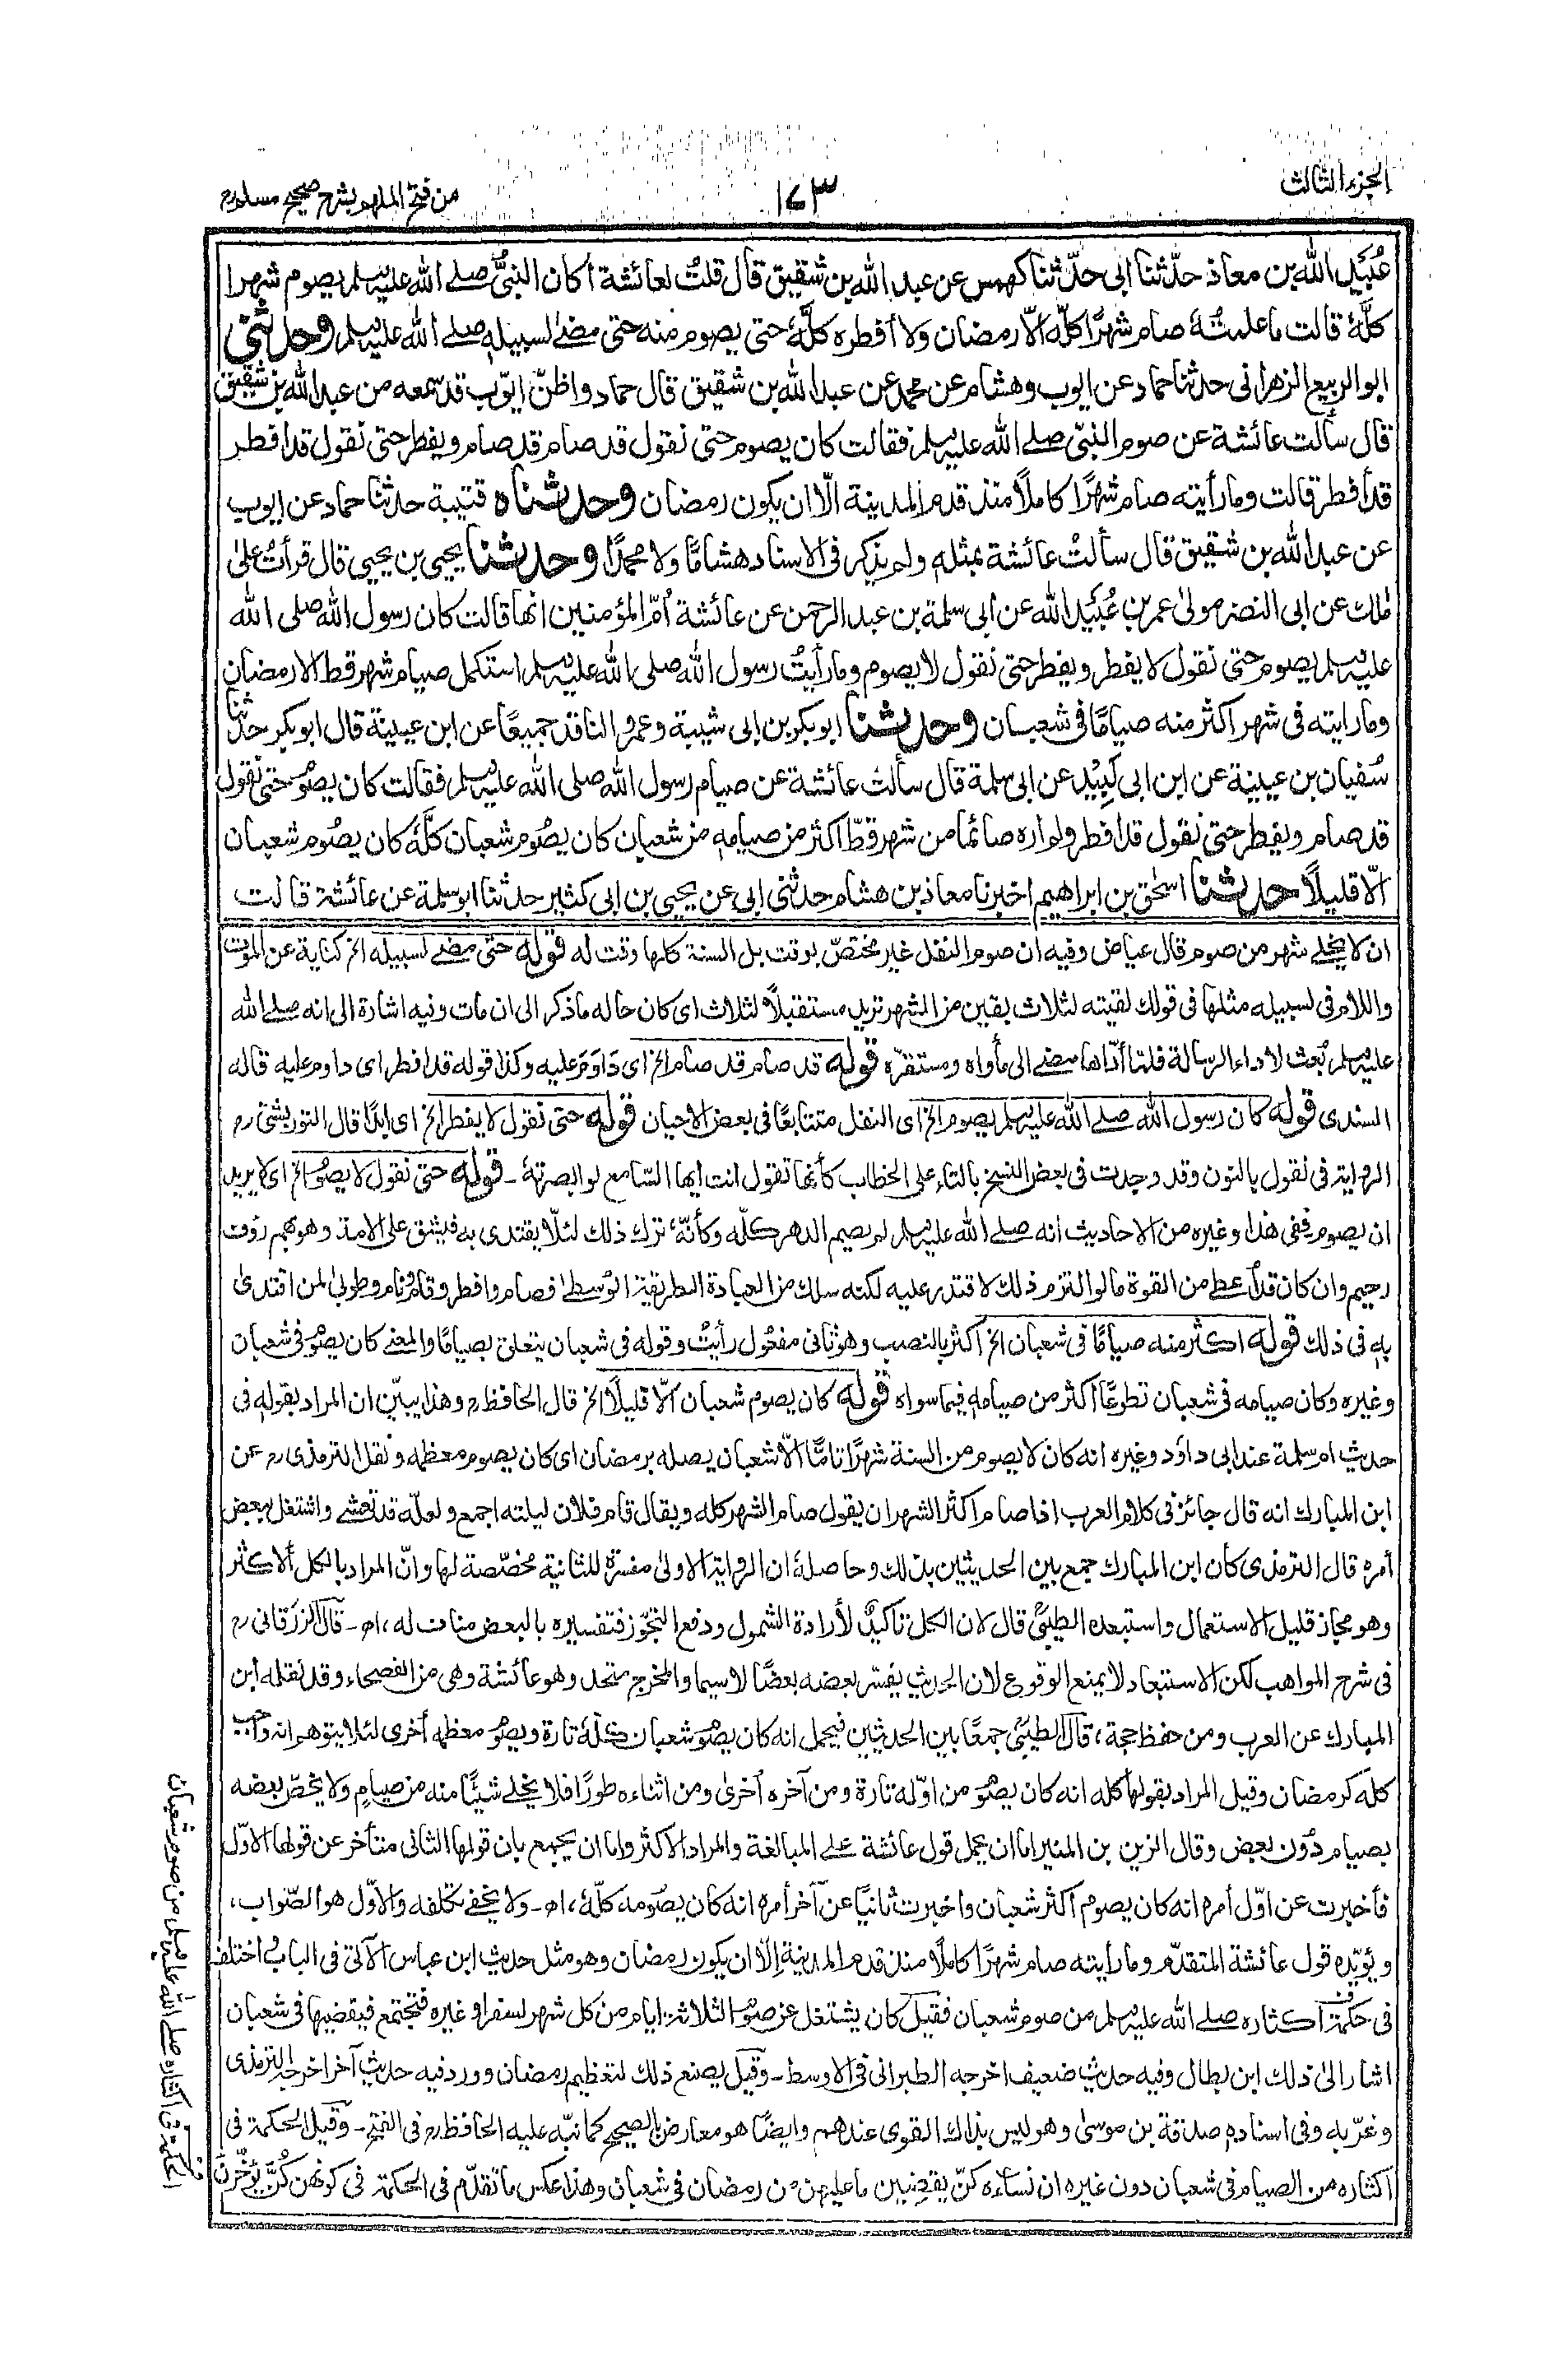 الجزء الثالث
١٧٣
من فتح الملهم بشرح صحيح مسلم رح
عُبَيد الله بن معاذ حدّثنا ابى حدّثنا كهمس عن عبد الله بن شقيق قال قلتُ لعائشة أكان النبىُّ صلے الله عليه وسلم يصوم شهرا
كلَّهٗ قالت ما علمتُهٗ صام شهرًا كلَّه الّا رمضان ولا أفطره كلَّهٗ حتى يصوم منه حتى مضٰے لسبيلهٖ صلے الله عليه وسلم وحدثنى
ابو الربيع الزهرانى حدثنا حماد عن ايوب وهشام عن محمد عن عبد الله بن شقيق قال حماد واظنّ ايّوب قد سمعه من عبد الله بن شقيق
قال سألت عائشة عن صوم النبىّ صلے الله عليه وسلم فقالت كان يصوم حتى نقول قد صام قد صام ويفطر حتى نقول قد افطر
قد أفطر قالت وما رأيته صام شهرًا كاملًا منذ قدم المدينة الّا ان يكون رمضان وحدثناه قتيبة حدثنا حماد عن ايوب
عن عبد الله بن شقيق قال سألتُ عائشة بمثلهٖ ولم يذكر فى الاسناد هشامًا ولا محمدًا وحدثنا يحيى بن يحيى قال قرأتُ علىٰ
مٰلك عن ابى النضر مولىٰ عمر بن عُبَيد الله عن ابى سلمة بن عبد الرحمن عن عائشة أمّ المؤمنين انها قالت كان رسول الله صلى الله
عليه وسلم يصوم حتى نقول لا يفطر ويفطر حتى نقول لا يصوم وما رأيتُ رسول الله صلى الله عليه وسلم استكمل صيام شهر قط الا رمضان
وما رايته فى شهر اكثر منه صيامًا فى شعبان وحدثنا ابو بكر بن ابى شيبة وعمرو الناقد جميعًا عن ابن عيينة قال ابو بكر حدثنا
سُفيان بن عيينة عن ابن ابى لَبِيْد عن ابى سلمة قال سألتُ عائشة عن صيام رسول الله صلى الله عليه وسلم فقالت كان يصوم حتى نقول
قد صام ويفطر حتى نقول قد أفطر ولم اره صائمًا من شهر قطّ اكثر من صيامهٖ من شعبان كان يصُوم شعبان كلَّهٗ كان يصُوم شعبان
الّا قليلًا حدثنا اسحٰق بن ابراهيم اخبرنا معاذ بن هشام حدثنى ابى عن يحيى بن ابى كثير حدثنا ابو سلمة عن عائشة قالت
ان لا يخلے شهر من صوم قال عياض وفيه ان صوم النفل غير مختصّ بوقت بل السنة كلها وقت له قوله حتى مضے لسبيله الخ كناية عن الموت
واللام فى لسبيله مثلها فى قولك لقيته لثلاث بقين من الشهر تريد مستقبلًا لثلاث اى كان حاله ما ذكر الى ان مات وفيه اشارة الى انه صلے الله
عليه وسلم بُعث لاداء الرسالة فلما أدّاها مضے الى مأواه ومستقرّه قوله قد صام قد صام الخ اى دَاوَمَ عليه وكذا قوله قد افطر اى داوم عليه قاله
السندى قوله كان رسول الله صلے الله عليه وسلم يصوم الخ اى النفل متتابعًا فى بعض الاحيان قوله حتى نقول لا يفطر الخ اى ابدًا قال التوربشتى رح
الرواية فى نقول بالنون وقد وجدت فى بعض النسخ بالتاء على الخطاب كأنها تقول انت ايها السّامع لو ابصرتهٗ ـ قوله حتى نقول لا يصوم الخ اى لا يريد
ان يصوم ففى هذا وغيره من الاحاديث انه صلے الله عليه وسلم لم يصم الدهر كلّه وكأنّهٗ ترك ذلك لئلّا يقتدى به فيشق على الامة وهو بهم رؤف
رحيم وان كان قد اُعطے من القوة ما لو التزم ذلك لاقتدر عليه لكنه سلك من العبادة الطريقة الوُسطٰے فصام وافطر وقام ونام وطوبىٰ لمن اقتدىٰ
بهٖ فى ذلك قوله اكثر منه صيامًا فى شعبان الخ أكثر بالنصب وهو ثانى مفعول رأيتُ وقوله فى شعبان يتعلق بصيامًا والمعنے كان يصوم فى شعبان
وغيره وكان صيامه فى شعبان تطوعًا أكثر من صيامهٖ فيما سواه قوله كان يصوم شعبان الّا قليلًا الخ قال الحافظ رح وهذا يبيّن ان المراد بقولهٖ فى
حديث ام سلمة عند ابى داوٗد وغيره انه كان لا يصوم من السنة شهرًا تامًّا الّا شعبان يصله برمضان اى كان يصوم معظمه ونقل الترمذى رح عن
ابن المبارك انه قال جائز فى كلام العرب اذا صام اكثر الشهر ان يقول صام الشهر كله ويقال قام فلان ليلته اجمع ولعلّه قد تعشے واشتغل ببعض
أمره قال الترمذى كان ابن المبارك جمع بين الحديثين بذلك وحاصلهٗ ان الرواية الاولىٰ مفسرة للثانية مُخصّصة لها وانّ المراد بالكل ألاكثر
وهو مجاز قليل الاستعمال واستبعده الطيبىؒ قال لان الكل تاكيدٌ لأرادة الشمول ودفع التجّوز فتفسيره بالبعض مناف له، اه ـ قال الزرقانى رح
فى شرح المواهب لكن الاستبعاد لا يمنع الوقوع لان الحديث يفسّر بعضه بعضًا لاسيما والمخرج متحد وهو عائشة وهى من الفصحاء وقد نقله ابن
المبارك عن العرب ومن حفظ حجة، قال الطيبىؒ جمعًا بين الحديثين فيحمل انه كان يصوم شعبان كلّهٗ تارة ويصوم معظمه أخرى لئلا يتوهم انه واجب
كلّه كرمضان وقيل المراد بقولها كله انه كان يصوم من اوّله تارة ومن آخره أخرىٰ ومن اثناءه طورًا فلا يخلے شيئًا منه من صيامٍ ولا يخصّ بعضه
بصيام دُون بعض وقال الزين بن المنير اما ان يحمل قول عائشة علے المبالغة والمراد الاكثر واما ان يجمع بان قولها الثانى متأخر عن قولها الاوّل
فأخبرت عن اوّل أمره انه كان يصوم أكثر شعبان واخبرت ثانيًا عن آخر أمره انه كان يصُومه كلّهٗ، اه ـ ولا يخفے تكلفه والاوّل هو الصّواب،
ويؤيّده قول عائشة المتقدّم وما رأيته صام شهرًا كاملًا منذ قدم المدينة إلّا ان يكون رمضان وهو مثل حديث ابن عباس الآتى فى الباب واختلف
فى حكمة اكثاره صلے الله عليه وسلم من صوم شعبان فقيل كان يشتغل عن صوم الثلاثة ايام من كل شهر لسفر او غيره فتجتمع فيقضيها فى شعبان
اشار الىٰ ذلك ابن بطال وفيه حديث ضعيف اخرجه الطبرانى فى الاوسط ـ وقيل يصنع ذلك لتعظيم رمضان وورد فيه حديث آخر اخرجه الترمذى
وغرّبه وفى اسنادهٖ صدقة بن موسىٰ وهو ليس بذاك القوى عندهم وايضًا هو معارض بالصحيح كما نبّه عليه الحافظ رح فى الفتح ـ وقيل الحكمة فى
اكثاره من الصيام فى شعبان دون غيره ان نساءه كنّ يقضين ما عليهن من رمضان فى شعبان وهذا عكس ما تقدّم فى الحكمة فى كونهن كُنَّ يؤخّرن
الحكمة فى اكثاره صلے الله عليه وسلم من صوم شعبان